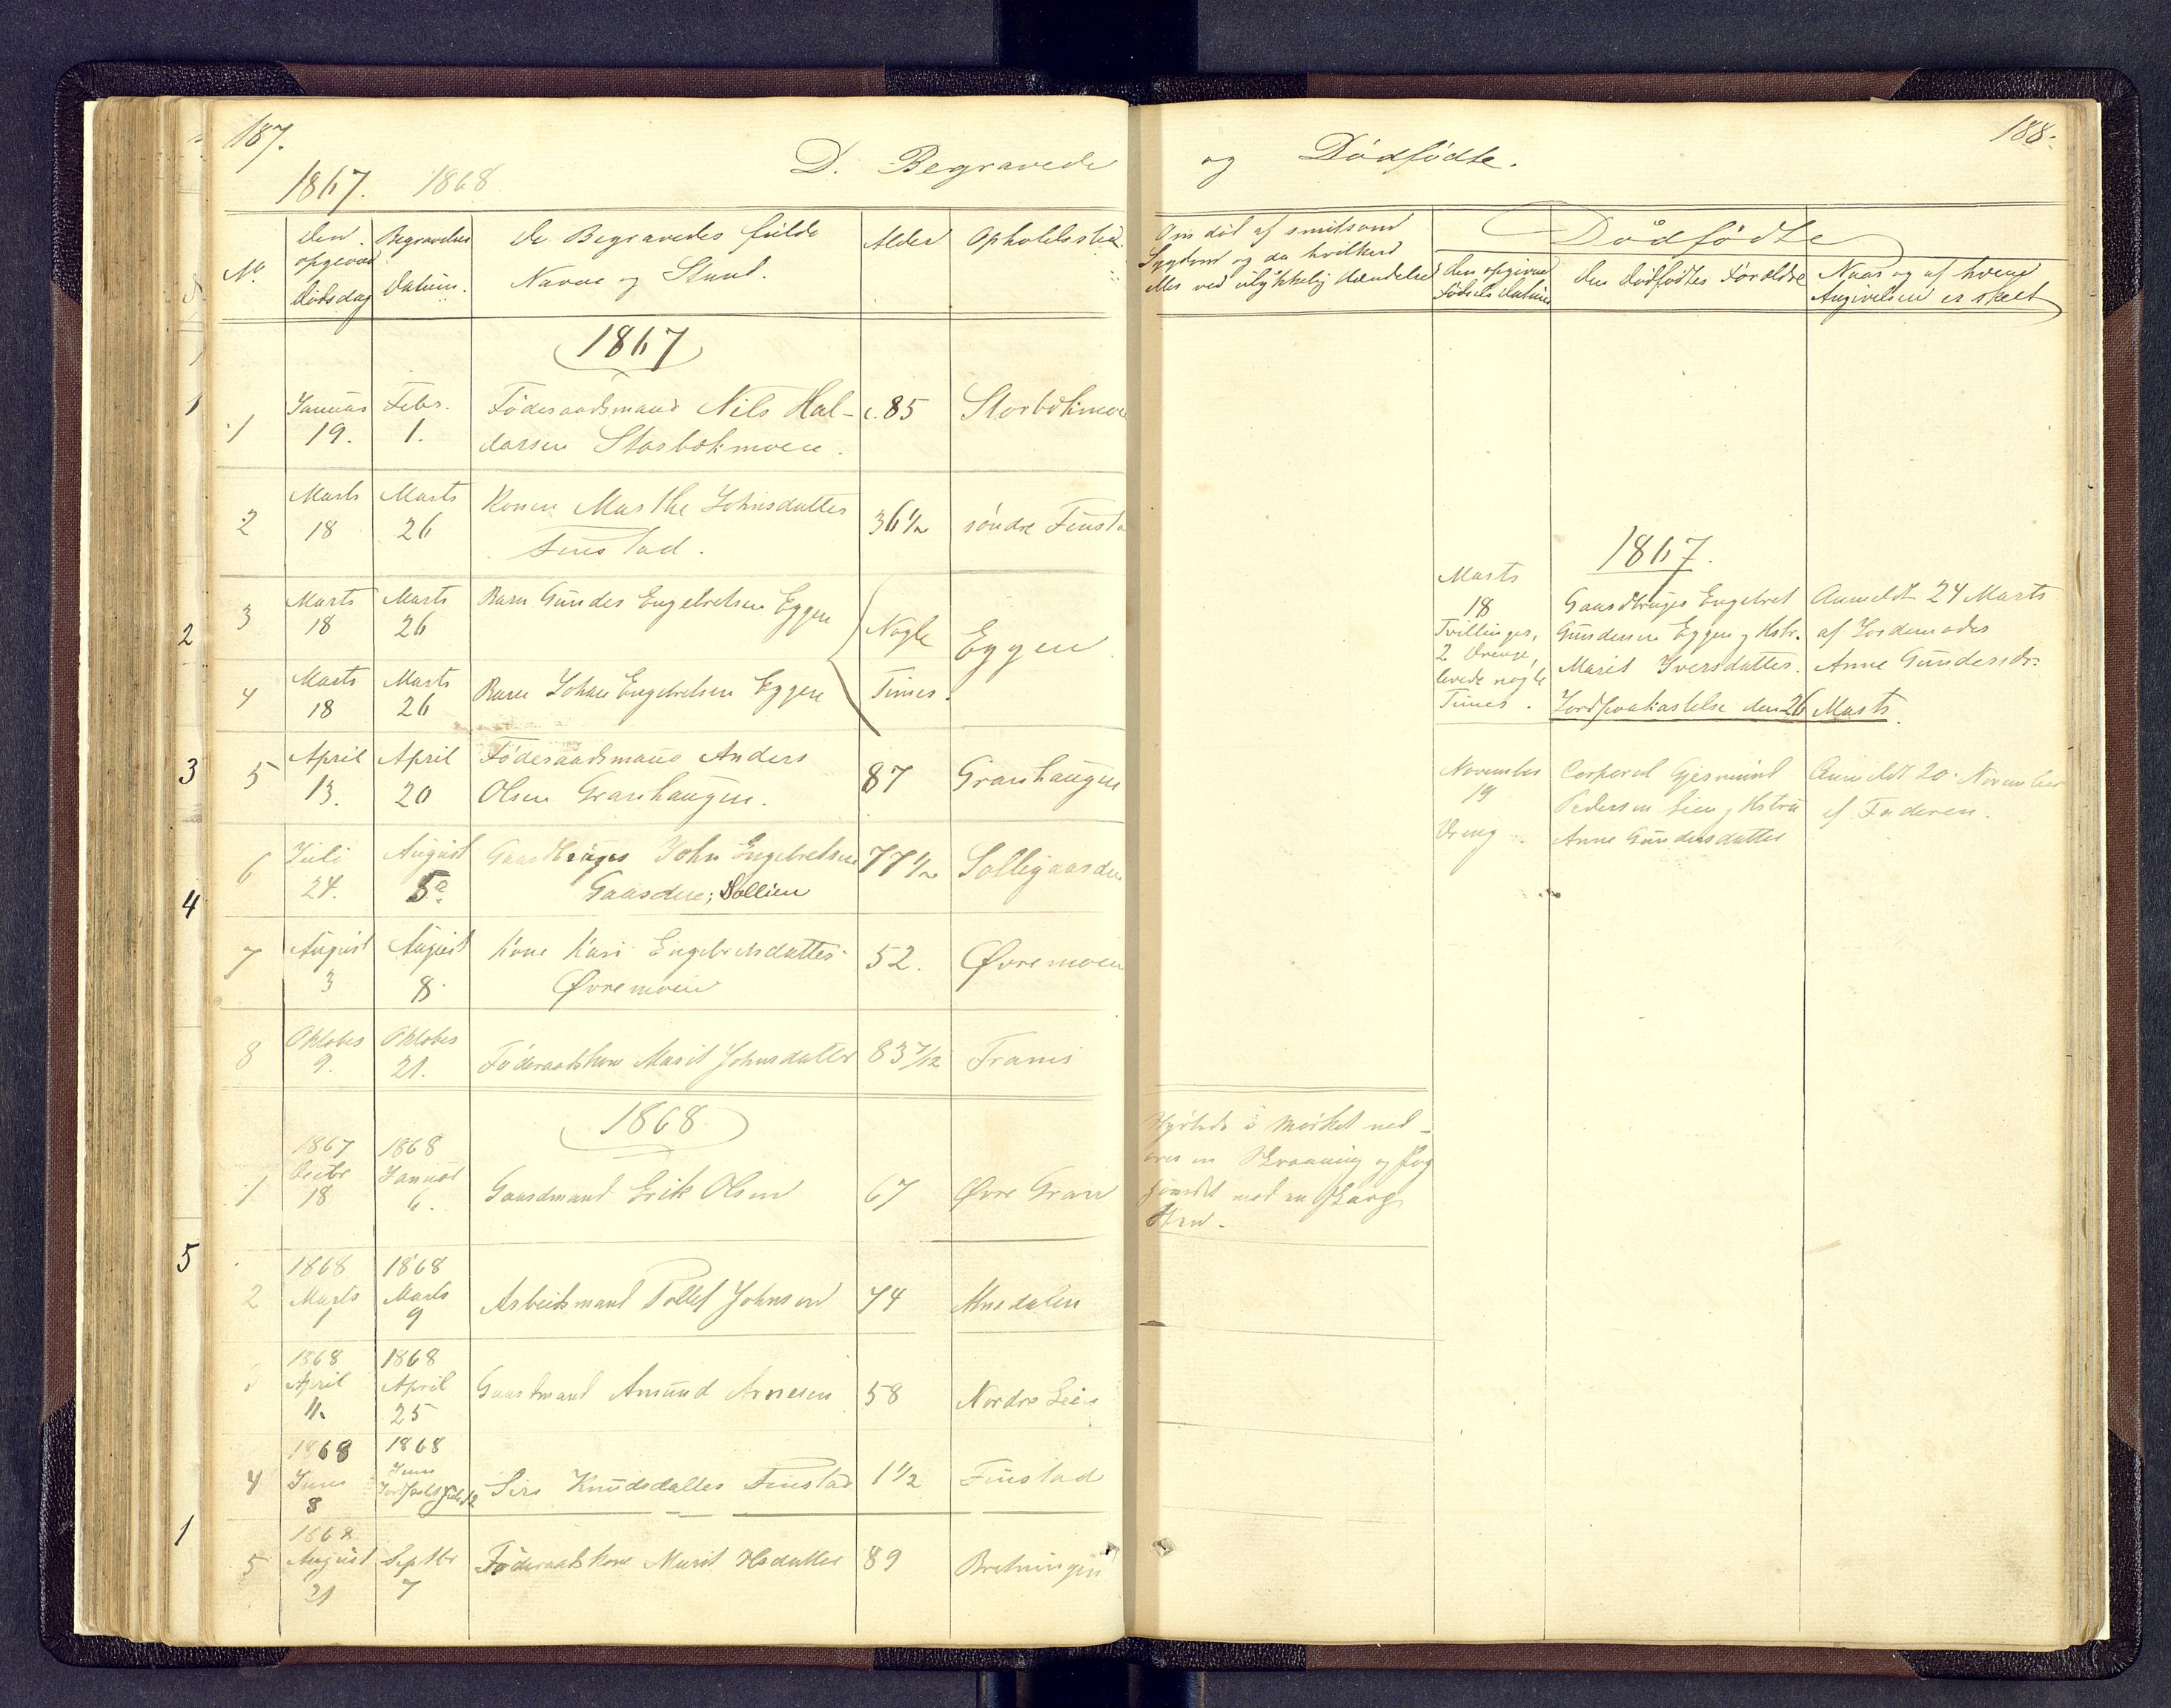 187.
1867. 1868
D. Begravede
No.
Den opgevne Dødsdag
Begravelses Datum.
De Begravedes fulde
Navne og Stand.
Alder
Opholdssted.
1867
1
Januar
19.
Febr.
1.
Föderaadsmand Nils Hal-
dorsen Storbækmoen.
c. 85
Storbækmoen
2
Marts
18
Marts
26
Konen Marthe Johnsdatter
Finstad.
36 1/2
søndre Finsta
3
Marts
18
Marts
26
Barn Gunder Engebretsen Eggen
Nogle
Eggen
4
Marts
18
Marts
26
Barn Johan Engebretsen Eggen
Timer.
5
April
13.
April
20
Föderaadsmand Anders
Olsen Granhaugen.
87
Granhaugen
6
Juli
24.
August
5
Gaardbruger John Engebretsen
Gaarden; Sollien
77 1/2
Solligaarden
7
August
3
August
8.
Kone Kari Engebretsdatter
Øvremoen
52.
Øvremoen
8
Oktober
9.
Oktober
21.
Föderaadskone Marit Johnsdatter
83 7/12
Framis
1868
1
1867
Decbr
18
1868
Januar
6.
Gaardmand Erik Olsen
67
Øvre Gran
2
1868
Marts
1
1868
Marts
9
Arbeidsmand Tollef Johnsen
74
Atnedalen
1868
April
11.
1868
April
25
Gaardmand Amund Arnesen
58
Nordre Lien
4
1868
Juni
8
1868
Juni
Siri Knudsdatter Finstad
1 1/2
Finstad
5
1868
August
21
Septbr
7
Föderaadskone Marit Hsdatter
89
Bretningen
1
2
3
4
5
1
188.
og Dödfödte.
Om död af smitsom
Sygdom og da hvilken
eller ved ulykkelig Hændelse
Dödfödte
Den opgivne
Födsels Datum
Den Dödfödtes Forældre
Naar og af hvem
Angivelsen er skeet
1867.
Marts
18
Tvillinger,
2 Drenge,
levede nogle
Timer.
Gaardbruger Engebret
Gundersen Eggen og Hstr.
Marit Iversdatter.
Jordpaakastelse den 26 Marts.
Anmeldt 24 Marts
af Jordemoder
Anne Gundersdr.
November
19
Dreng
Corporal Gjermund
Pedersen Lien og Hstru
Anne Gundersdatter
Anmeldt 20. November
af Faderen.
Styrtede i Mörket ned-
over en Skraaning og slog
mod en skarp
Sten.